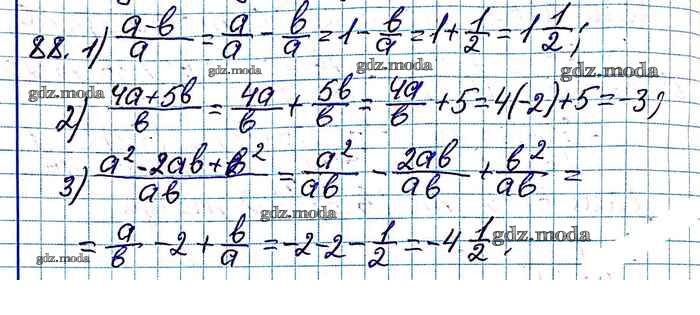 88. 1) (a-b)/a = a/a - b/a = 1 - b/a = 1 + 1/2 = 1 1/2;
gdz.moda gdz.moda gdz.moda
2) (4a+5b)/b = 4a/b + 5b/b = 4a/b + 5 = 4(-2)+5 = -3;
3) (a²-2ab+b²)/ab = a²/ab - 2ab/ab + b²/ab =
gdz.moda
= a/b - 2 + b/a = -2-2- 1/2 = -4 1/2;
gdz.moda gdz.moda